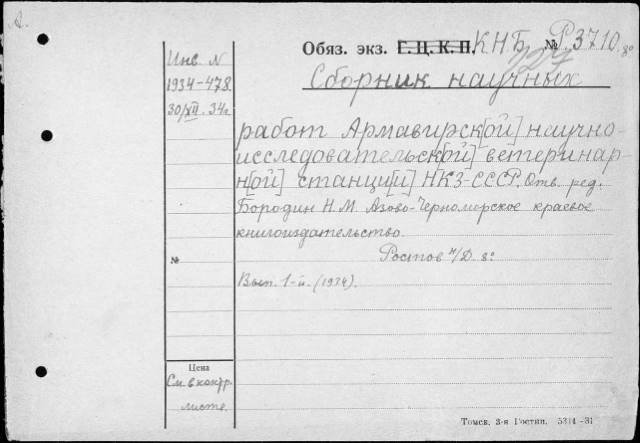 Обяз. экз. Г.Ц.К.П. К.Н.Б. № Р.3710. 8°
Инв. N
1934-478
30/XII. 34г.
Сборник научных
работ Армавирск[ой] научно-
исследовательск[ой] ветеринар-
н[ой] станци[и] НКЗ-СССР. Отв. ред.
Бородин Н.М. Азово-Черноморское краевое
книгоиздательство.
№
Ростов н/Д. 8°
Вып. 1-й. (1934).
Цена
См. в контр.
листе.
Томск. 3-я Гостип. 5314-31